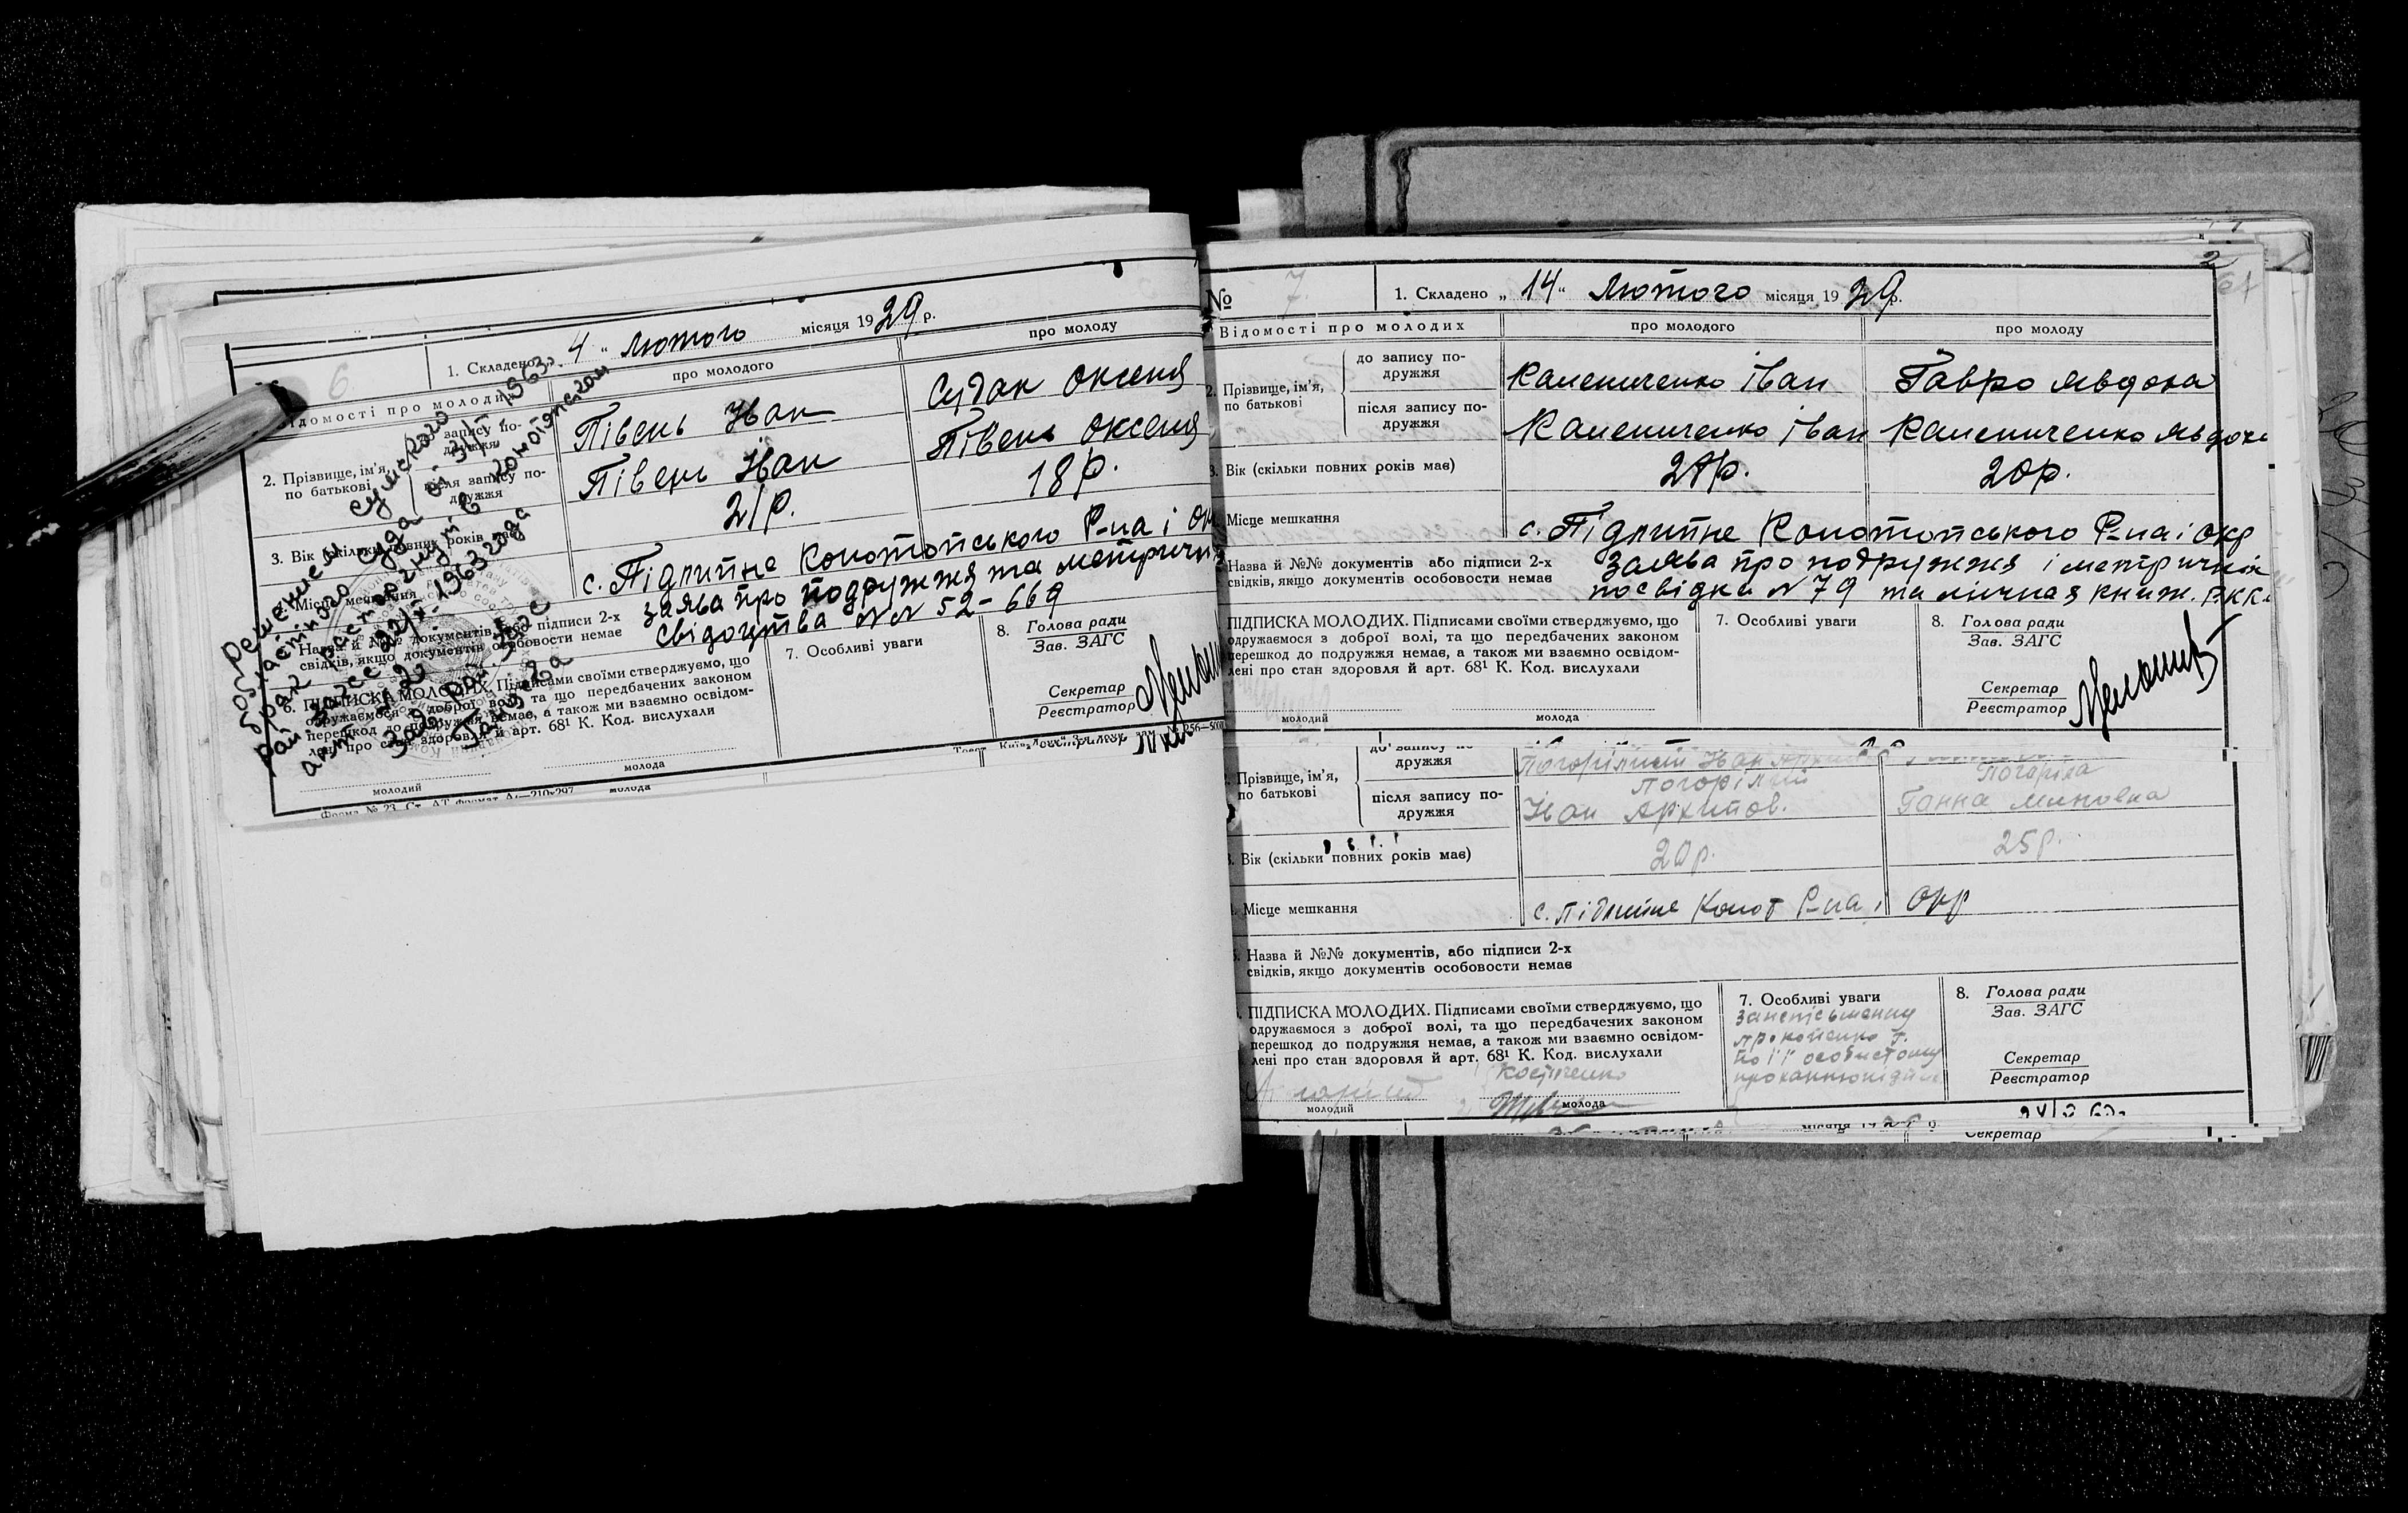 6
1. Складено „ 4 “ Лютого місяця 1929 р.
Відомості про молодих
про молодого
про молоду
2. Прізвище, ім’я, по батькові
запису по-
дружжя
Півень Іван
Судак Оксеня
після запису по-
дружжя
Півень Іван
Півень Оксеня
3. Вік (скільки повних років має)
21р.
18р.
4. Місце мешкання
с. Підлипне Конотопського Р-на і Ок
Назва й №№ документів, або підписи 2-х
свідків, якщо документів особовости немає
Заява про подружжя та метричні
свідоцтва №№ 52-669
6. ПІДПИСКА МОЛОДИХ. Підписами своїми стверджуємо, що
одружаємося з доброї волі, та що передбачених законом
перешкод до подружжя немає, а також ми взаємно освідом-
лені про стан здоровля й арт. 68¹ К. Код. вислухали
молодий
молода
7. Особливі уваги
8. Голова ради
Зав. ЗАГС
Секретар
Реєстратор
Решением Сумского
областного суда от 1963
брак расторгнут в Конотопском
рай загсе 1963 года
Зав. Рай. Загс
молода
№ 7
1. Складено „ 14 “ Лютого місяця 1929 р.
2
61
Відомості про молодих
про молодого
про молоду
2. Прізвище, ім’я,
по батькові
до запису по-
дружжя
Калениченко Іван
Гавро Явдоха
після запису по-
дружжя
Калениченко Іван
Калениченко Явдоха
3. Вік (скільки повних років має)
20р.
Місце мешкання
с. Підлипне Конотопського Р-на і окр
Назва й №№ документів або підписи 2-х
свідків, якщо документів особовости немає
Заява про подружжя і метричні
посвідки № 79 та лічная книж. РКК
ПІДПИСКА МОЛОДИХ. Підписами своїми стверджуємо, що
одружаємося з доброї волі, та що передбачених законом
перешкод до подружжя немає, а також ми взаємно освідом-
лені про стан здоровля й арт. 68¹ К. Код. вислухали
молодий
молода
7. Особливі уваги
8. Голова ради
Зав. ЗАГС
Секретар
Реєстратор
Прізвище, ім’я,
по батькові
до запису по-
дружжя
Погорілий Іван
після запису по-
дружжя
Погорілий
Іван Архипов.
Погоріла
Ганна Миновна
Вік (скільки повних років має)
20р.
25р.
Місце мешкання
с. Підлипне Конот Р-на і Окр
Назва й №№ документів, або підписи 2-х
свідків, якщо документів особовости немає
ПІДПИСКА МОЛОДИХ. Підписами своїми стверджуємо, що
одружаємося з доброї волі, та що передбачених законом
перешкод до подружжя немає, а також ми взаємно освідом-
лені про стан здоровля й арт. 68¹ К. Код. вислухали
молодий
молода
7. Особливі уваги
За неписьменну
Прокопенко Г.
по її особистому
8. Голова ради
Зав. ЗАГС
Секретар
Реєстратор
Секретар